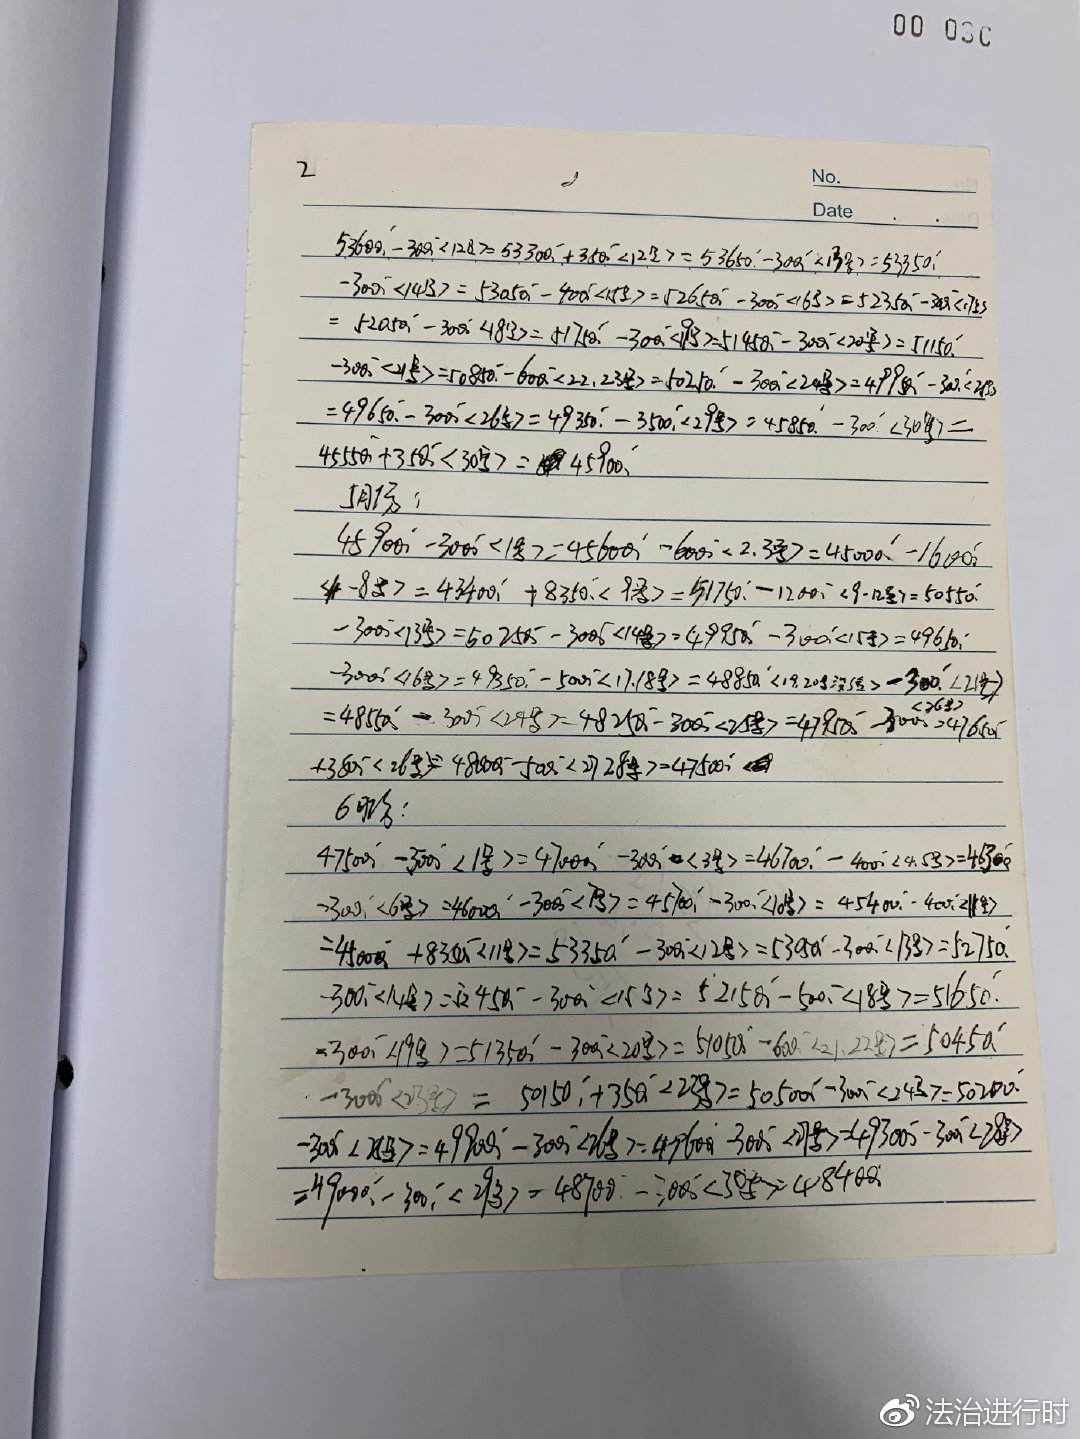 00 030
2
No.
Date . .
53600 -300<12号>=53300+350<12号>=53650-300<13号>=53350
-300<14号>=53050-400<15号>=52650-300<16号>=52350-300<17号>
=52050-300<18号>=51750-300<19号>=51450-300<20号>=51150
-300<21号>=50850-600<22.23号>=50250-300<24号>=49950-300<25号>
=49650-300<26号>=49350-3500<29号>=45850-300<30号>=
45550+350<30号>=45900
5月份:
45900-300<1号>=45600-600<2.3号>=45000-1600
<4-8号>=43400+8350<9号>=51750-1200<9-12号>=50550
-300<13号>=50250-300<14号>=49950-300<15号>=49650
-300<16号>=49350-500<17.18号>=48850<19.20号没> -300<21号>
=48550-300<24号>=48250-300<25号>=47950-300<26号>=47650
+350<26号>=48000-500<27.28号>=47500
6月份:
47500-500<1号>=47000-300<3号>=46700-400<4.5号>=46300
-300<6号>=46000-300<7号>=45700-300<10号>=45400-400<11号>
=45000+8350<11号>=53350-300<12号>=53050-300<13号>=52750
-300<14号>=52450-300<15号>=52150-500<18号>=51650
-300<19号>=51350-300<20号>=51050-600<21.22号>=50450
-300<23号>=50150+350<23号>=50500-300<24号>=50200
-300<25号>=49900-300<26号>=49600-300<27号>=49300-300<28号>
=49000-300<29号>=48700-300<30号>=48400
法治进行时